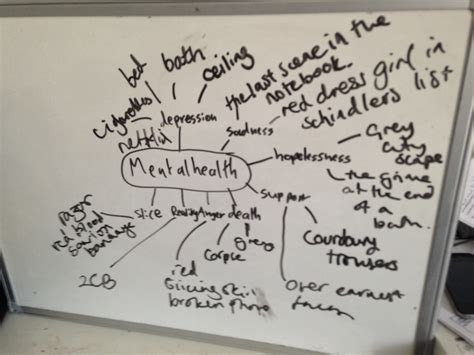 bed
bath
ceiling
cigarettes
netflix
depression
the last scene in the
notebook.
sadness
red dress girl in
schindlers list
Mental health
hopelessness
Grey
city
scape
the grime
at the end
of a
bath.
support
Corduroy
trousers
Over earnest
slice
razor
red blood
savlon
bandage
Reality
2CB
Anger
red
Slicing skin
broken phone
death
Corpse
grey